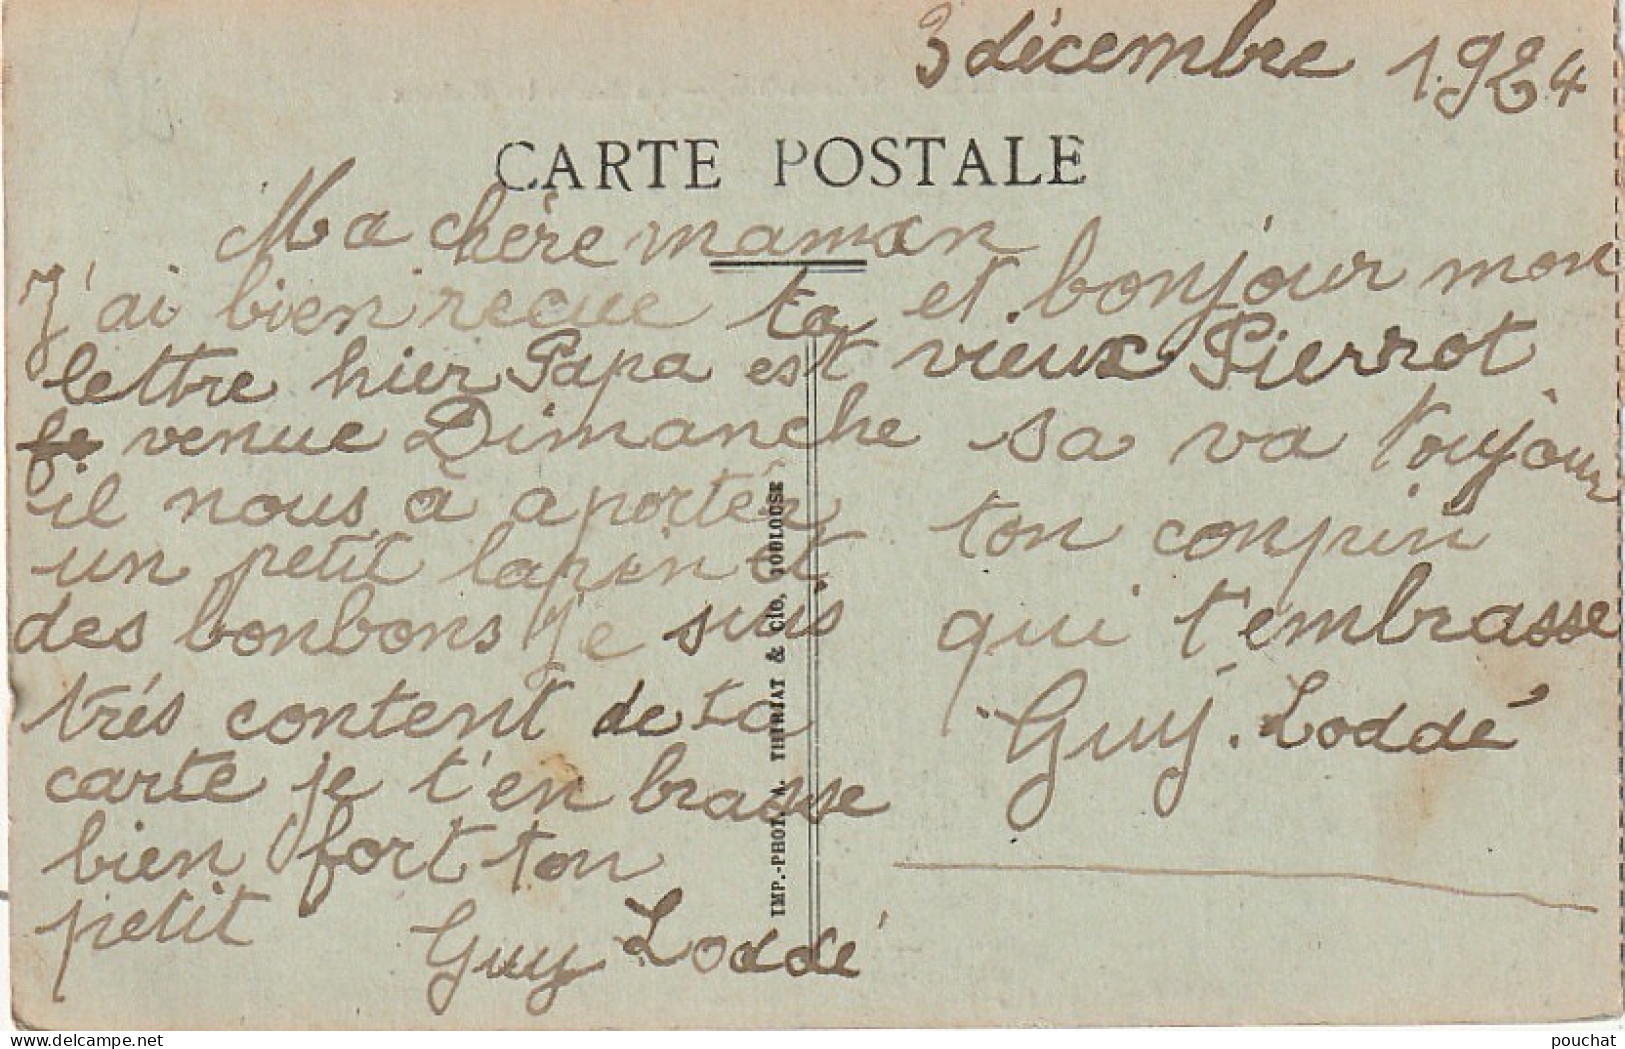 3 décembre 1924
CARTE POSTALE
Ma chère maman
J'ai bien recue ta
lettre hier Papa est
venue Dimanche
il nous à aporter
un petit lapin et
des bonbons Je suis
trés content de ta
carte je t'en brasse
bien fort ton
petit Guy Loddé
et bonjour mon
vieux Pierrot
sa va toujour
ton conpin
qui t'embrasse
Guy. Loddé
IMP.-PHOT. A. THIRIAT & CIE, TOULOUSE
delcampe.net
pouchat